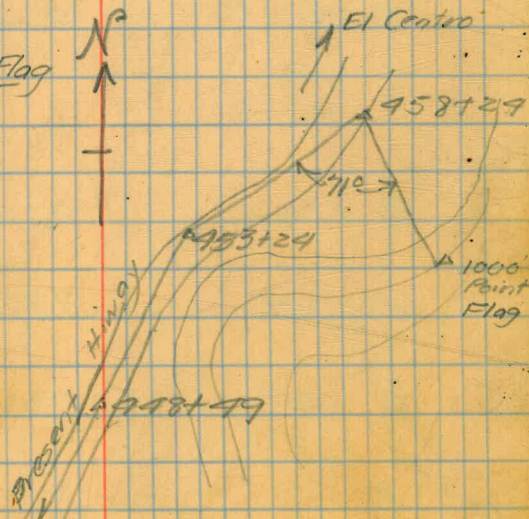 N
El Centro
Flag
458+24
71°
453+24
1000'
Point
Flag
Present Hiway
448+49